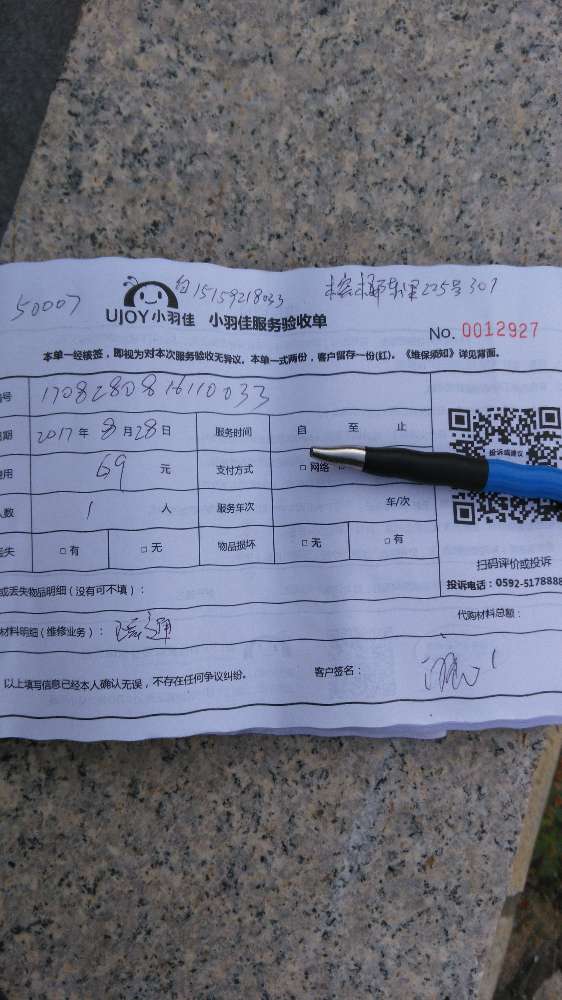 50007
15159218033
225号301
UJOY小羽佳 小羽佳服务验收单
No. 0012927
本单一经核签，即视为对本次服务验收无异议。本单一式两份，客户留存一份(红)。《维保须知》详见背面。
号 1708280816110033
期 2017年 8月28日 服务时间 自 至 止
费用 69 元 支付方式 □ 网络 □
投诉或建议
人数 1 人 服务车次 年/次
丢失 □ 有 □ 无 物品损坏 □ 无 □ 有
扫码评价或投诉
投诉电话：0592-5178888
或丢失物品明细（没有可不填）：
代购材料总额：
材料明细（维修业务）： 疏通
以上填写信息已经本人确认无误，不存在任何争议纠纷。 客户签名：